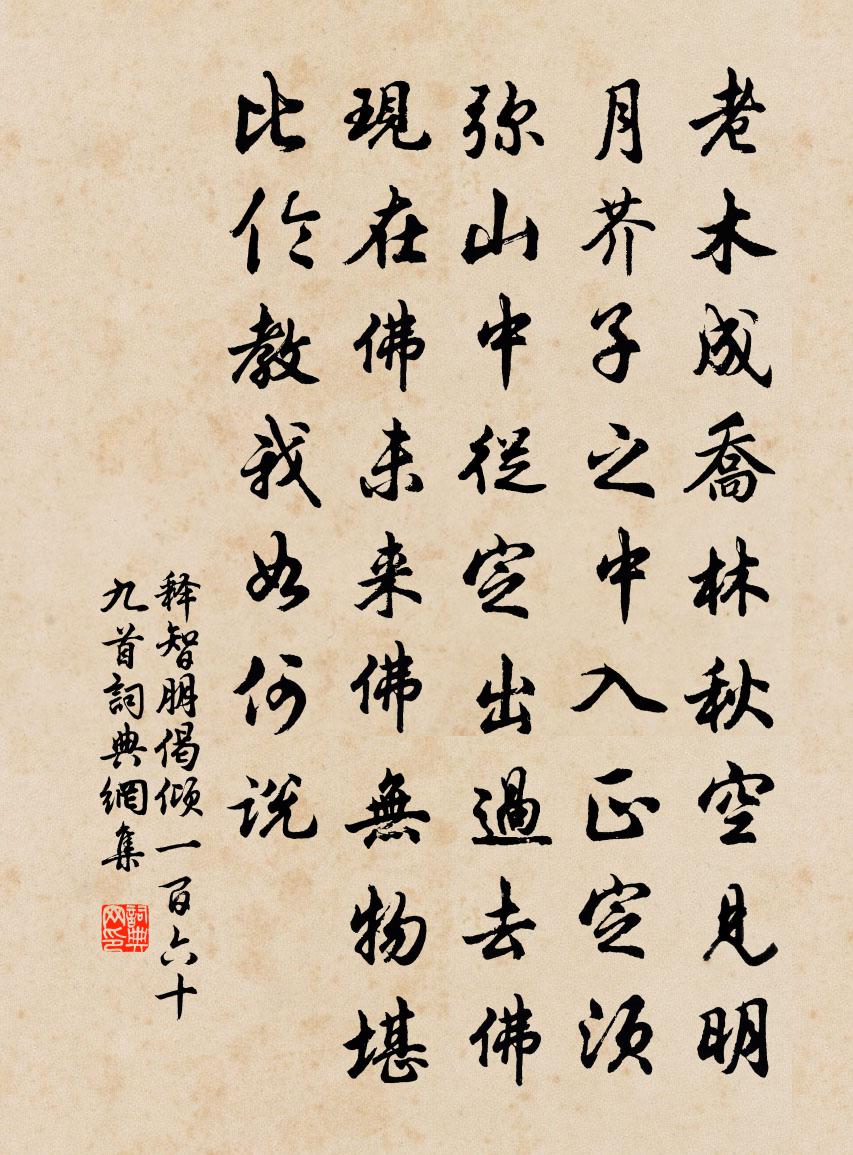 老木成喬林秋空見明
月芥子之中入正定須
弥山中從定出過去佛
現在佛未来佛無物堪
比倫教我如何説
释智朋偈倾一百六十
九首詞典網集
詞典网印